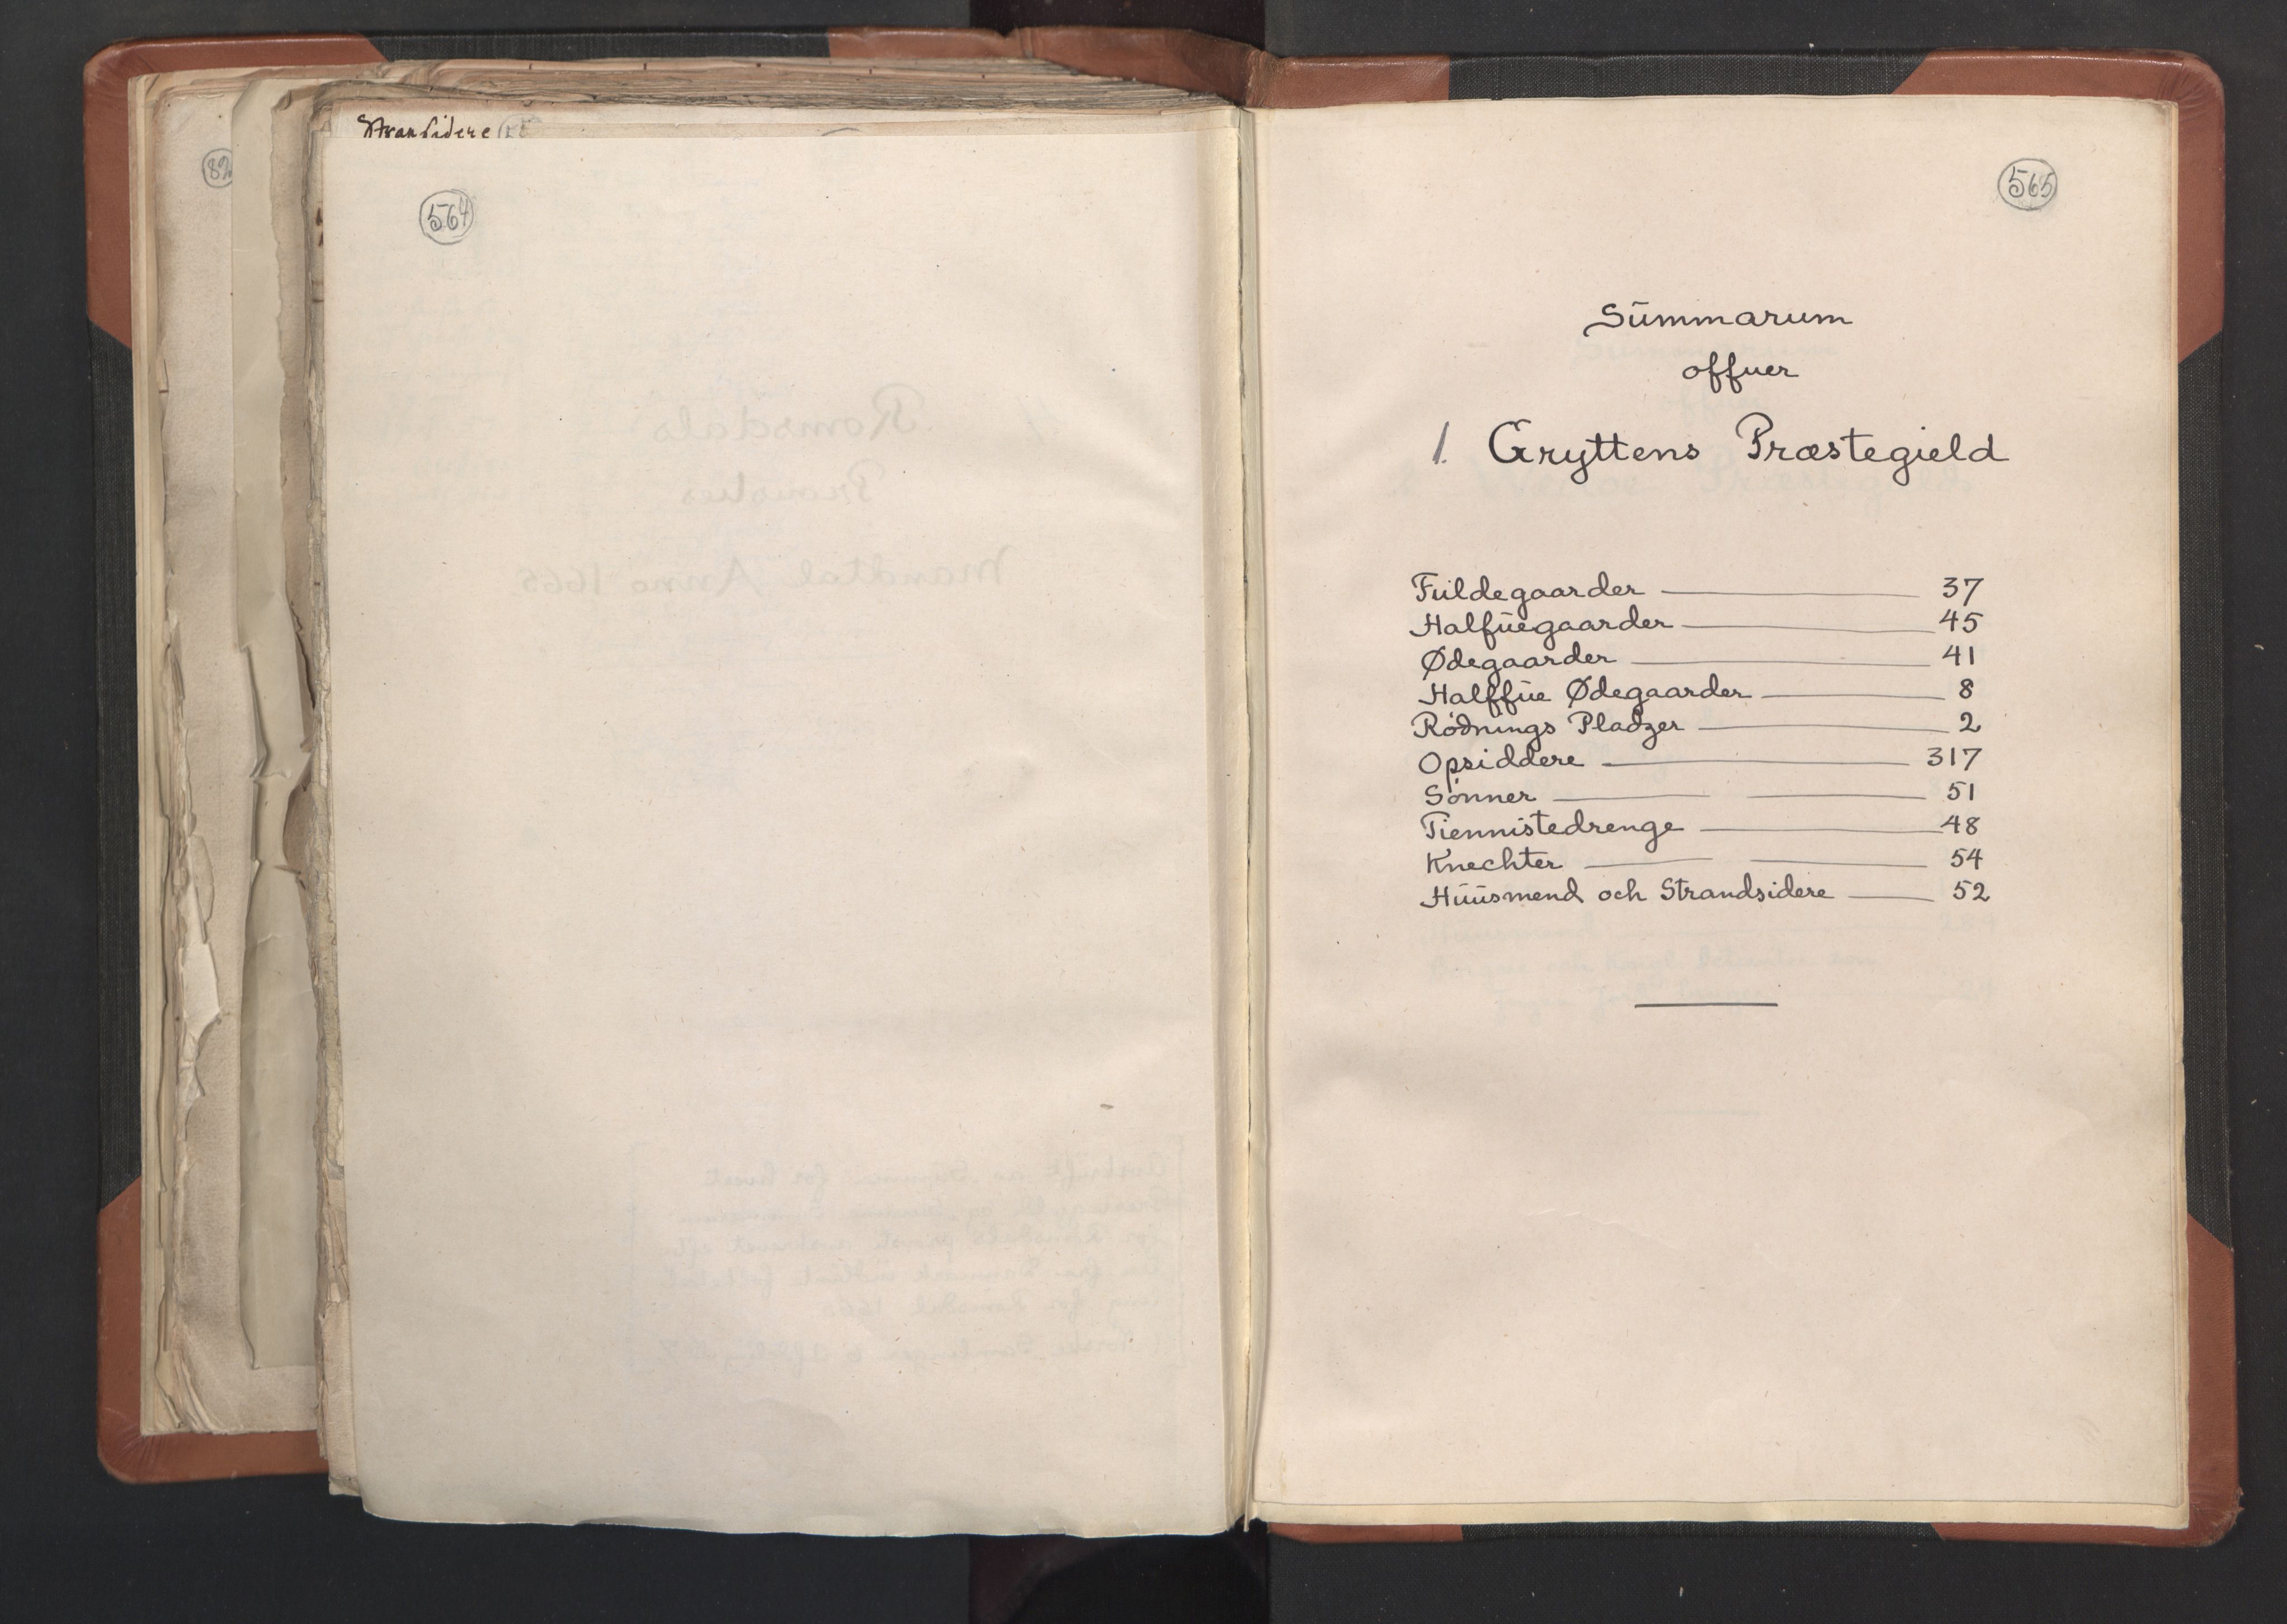 Strandsidere
82
564
565
Sūmmarum
offuer
1. Gryttens Præstegield
Fūldegaarder 37
Halfūegaarder 45
Ødegaarder 41
Halffūe Ødegaarder 8
Rødnings Pladzer 2
Opsiddere 317
Sønner 51
Tiennistedrenge 48
Knechter 54
Hūūsmend och Strandsidere 52